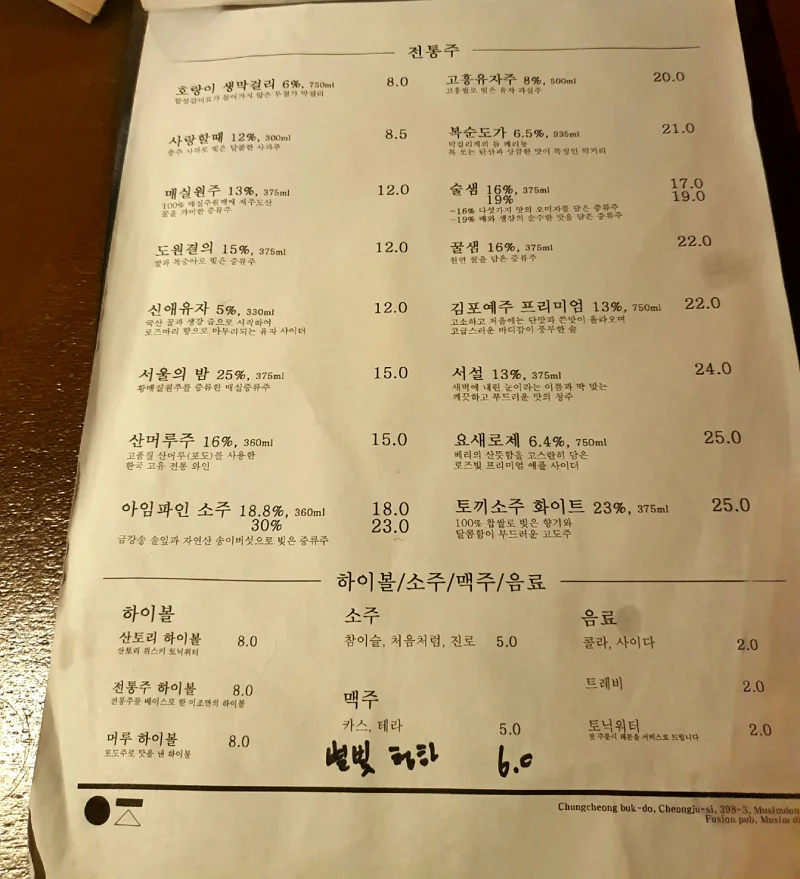 전통주
호랑이 생막걸리 6%, 750ml 8.0
합성감미료가 들어가지 않은 무첨가 막걸리
사랑할때 12%, 300ml 8.5
충주 사과로 빚은 달콤한 사과주
매실원주 13%, 375ml 12.0
100% 매실주원액에 제주도산
꿀을 가미한 증류주
도원결의 15%, 375ml 12.0
쌀과 복숭아로 빚은 증류주
신애유자 5%, 330ml 12.0
국산 꿀과 생강 즙으로 시작하여
로즈마리 향으로 마무리되는 유자 사이더
서울의 밤 25%, 375ml 15.0
황매실원주를 증류한 매실증류주
산머루주 16%, 360ml 15.0
고품질 산머루(포도)를 사용한
한국 고유 전통 와인
아임파인 소주 18.8%, 360ml 18.0
30% 23.0
금강송 솔잎과 자연산 송이버섯으로 빚은 증류주
고흥유자주 8%, 500ml 20.0
고흥쌀로 빚은 유자 과실주
복순도가 6.5%, 935ml 21.0
막걸리계의 돔 페리뇽
톡 쏘는 탄산과 상큼한 맛이 특징인 막거리
술샘 16%, 375ml 17.0
19% 19.0
-16% 다섯가지 맛의 오미자를 담은 증류주
-19% 배와 생강의 순수한 맛을 담은 증류주
꿀샘 16%, 375ml 22.0
천연 꿀을 담은 증류주
김포예주 프리미엄 13%, 750ml 22.0
고소하고 처음에는 단맛과 쓴맛이 올라오며
고급스러운 바디감이 풍부한 술
서설 13%, 375ml 24.0
새벽에 내린 눈이라는 이름과 딱 맞는
깨끗하고 부드러운 맛의 청주
요새로제 6.4%, 750ml 25.0
베리의 산뜻함을 고스란히 담은
로즈빛 프리미엄 애플 사이더
토끼소주 화이트 23%, 375ml 25.0
100% 찹쌀로 빚은 향기와
달콤함이 부드러운 고도주
하이볼/소주/맥주/음료
하이볼
산토리 하이볼 8.0
산토리 위스키 토닉워터
전통주 하이볼 8.0
전통주를 베이스로 한 이조만의 하이볼
머루 하이볼 8.0
포도주로 맛을 낸 하이볼
소주
참이슬, 처음처럼, 진로 5.0
맥주
카스, 테라 5.0
별빛 청하 6.0
음료
콜라, 사이다 2.0
트레비 2.0
토닉워터 2.0
첫 주문시 레몬을 서비스로 드립니다
Chungcheong buk-do, Cheongju-si, 398-3, Musimdon
Fusion pub, Musim di